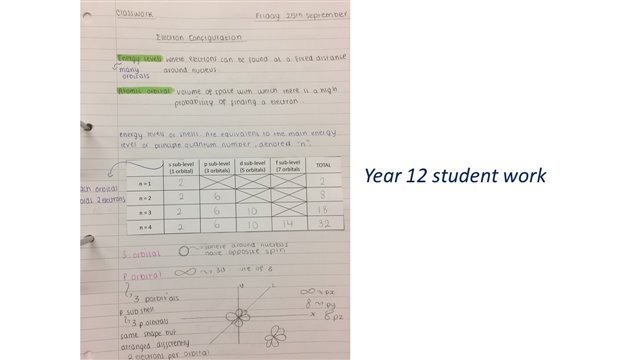 Classwork Friday 25th September
Electron Configuration
Energy levels where electrons can be found at a fixed distance
many around nucleus
orbitals
Atomic orbital volume of space with which there is a high
probability of finding a electron.
energy levels or shells are equivalent to the main energy
level or principle quantum number, denoted "n"
s sub-level (1 orbital) p sub-level (3 orbitals) d sub-level (5 orbitals) f sub-level (7 orbitals TOTAL
n = 1 2 2
n = 2 2 6 8
n = 3 2 6 10 18
n = 4 2 6 10 14 32
orbital
2 electrons
Year 12 student work
S orbital where around nucleus
have opposite spin
P orbital of 8
3 p orbitals
P sub shell
3 p orbitals
same shape but
arranged differently
2 electrons per orbital
px
8 py
x 8 pz